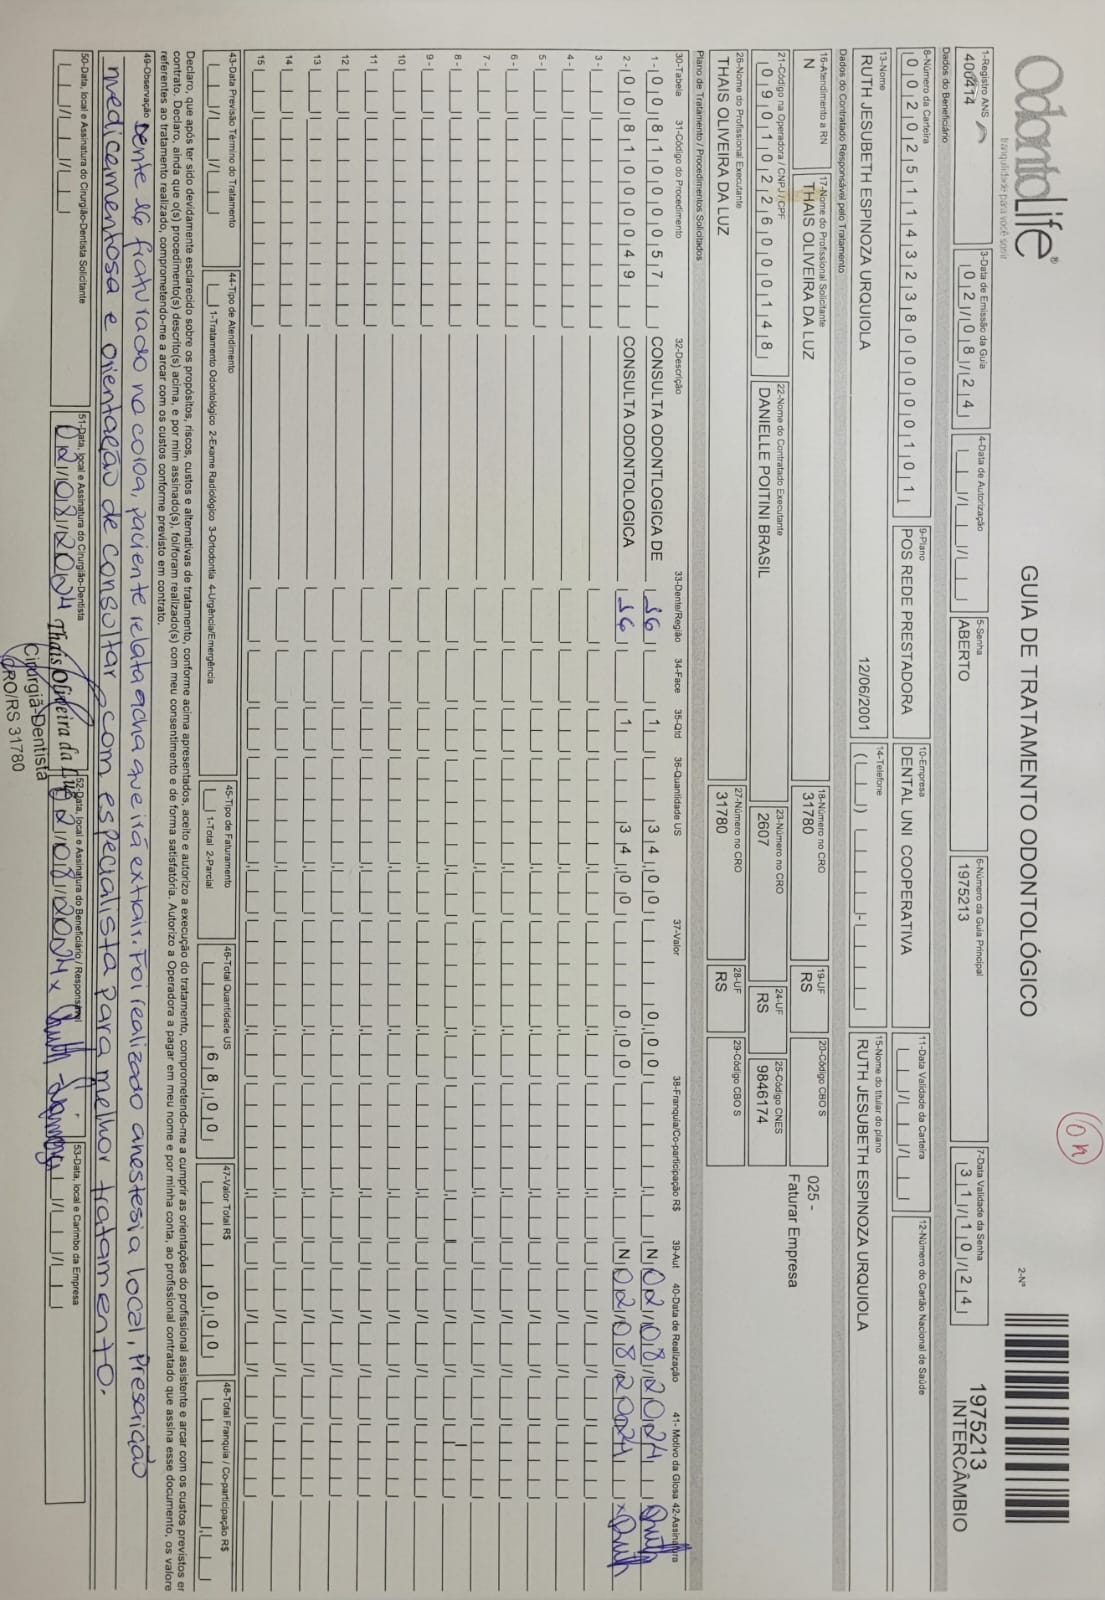 OdontoLife®
tranquilidade para você sorrir
GUIA DE TRATAMENTO ODONTOLÓGICO
on
2-Nº
1975213
INTERCÂMBIO
1-Registro ANS
406414
3-Data de Emissão da Guia
02/08/24
4-Data de Autorização
5-Senha
ABERTO
6-Número da Guia Principal
1975213
7-Data Validade da Senha
31/10/24
Dados do Beneficiário
8-Número da Carteira
002025114323800000101
9-Plano
POS REDE PRESTADORA
10-Empresa
DENTAL UNI COOPERATIVA
11-Data Validade da Carteira
12-Número do Cartão Nacional de Saúde
13-Nome
RUTH JESUBETH ESPINOZA URQUIOLA
12/06/2001
14-Telefone
15-Nome do titular do plano
RUTH JESUBETH ESPINOZA URQUIOLA
Dados do Contratado Responsável pelo Tratamento
16-Atendimento a RN
N
17-Nome do Profissional Solicitante
THAIS OLIVEIRA DA LUZ
18-Número no CRO
31780
19-UF
RS
20-Código CBO S
025 -
Faturar Empresa
21-Código na Operadora / CNPJ / CPF
09010226000148
22-Nome do Contratado Executante
DANIELLE POITINI BRASIL
23-Número no CRO
2607
24-UF
RS
25-Código CNES
9846174
26-Nome do Profissional Executante
THAIS OLIVEIRA DA LUZ
27-Número no CRO
31780
28-UF
RS
29-Código CBO S
Plano de Tratamento / Procedimentos Solicitados
30-Tabela 31-Código do Procedimento 32-Descrição 33-Dente/Região 34-Face 35-Qtd 36-Quantidade US 37-Valor 38-Franquia/Co-participação R$ 39-Aut 40-Data de Realização 41- Motivo da Glosa 42-Assinatura
1- 00 81000057 CONSULTA ODONTLOGICA DE 16 1 34,00 0,00 N 02/08/2024 Ruth
2- 00 81000049 CONSULTA ODONTOLOGICA 16 1 34,00 0,00 N 02/08/2024 x Ruth
3-
4-
5-
6-
7-
8-
9-
10
11
12
13
14
15
43-Data Previsão Término do Tratamento
44-Tipo de Atendimento
1-Tratamento Odontológico 2-Exame Radiológico 3-Ortodontia 4-Urgência/Emergência
45-Tipo de Faturamento
1-Total 2-Parcial
46-Total Quantidade US
68,00
47-Valor Total R$
0,00
48-Total Franquia / Co-participação R$
Declaro, que após ter sido devidamente esclarecido sobre os propósitos, riscos, custos e alternativas de tratamento, conforme acima apresentados, aceito e autorizo a execução do tratamento, comprometendo-me a cumprir as orientações do profissional assistente e arcar com os custos previstos em
contrato. Declaro, ainda que o(s) procedimento(s) descrito(s) acima, e por mim assinado(s), foi/foram realizado(s) com meu consentimento e de forma satisfatória. Autorizo a Operadora a pagar em meu nome e por minha conta, ao profissional contratado que assina esse documento, os valore
referentes ao tratamento realizado, comprometendo-me a arcar com os custos conforme previsto em contrato.
49-Observação Dente 16 fraturado na coroa, paciente relata acha que irá extrair. Foi realizado anestesia local, Prescrição
medicamentosa e orientação de consultar com especialista para melhor tratamento.
50-Data, local e Assinatura do Cirurgião-Dentista Solicitante
51-Data, local e Assinatura do Cirurgião-Dentista
02/08/2024
Thais Oliveira da Luz
Cirurgiã-Dentista
CRO/RS 31780
52-Data, local e Assinatura do Beneficiário / Responsável
02/08/2024 x Ruth
53-Data, local e Carimbo da Empresa